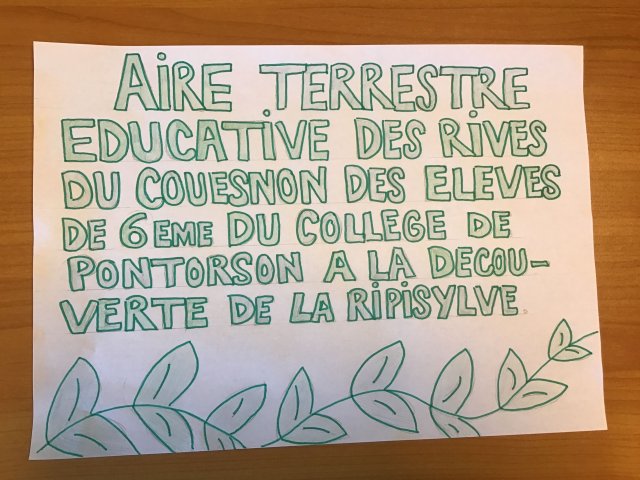 AiRE TERRESTRE
EDUCATiVE DES RiVES
DU COUESNON DES ELEVES
DE 6EME DU COLLEGE DE
PONTORSON A LA DECOU-
VERTE DE LA RiPiSYLVE.